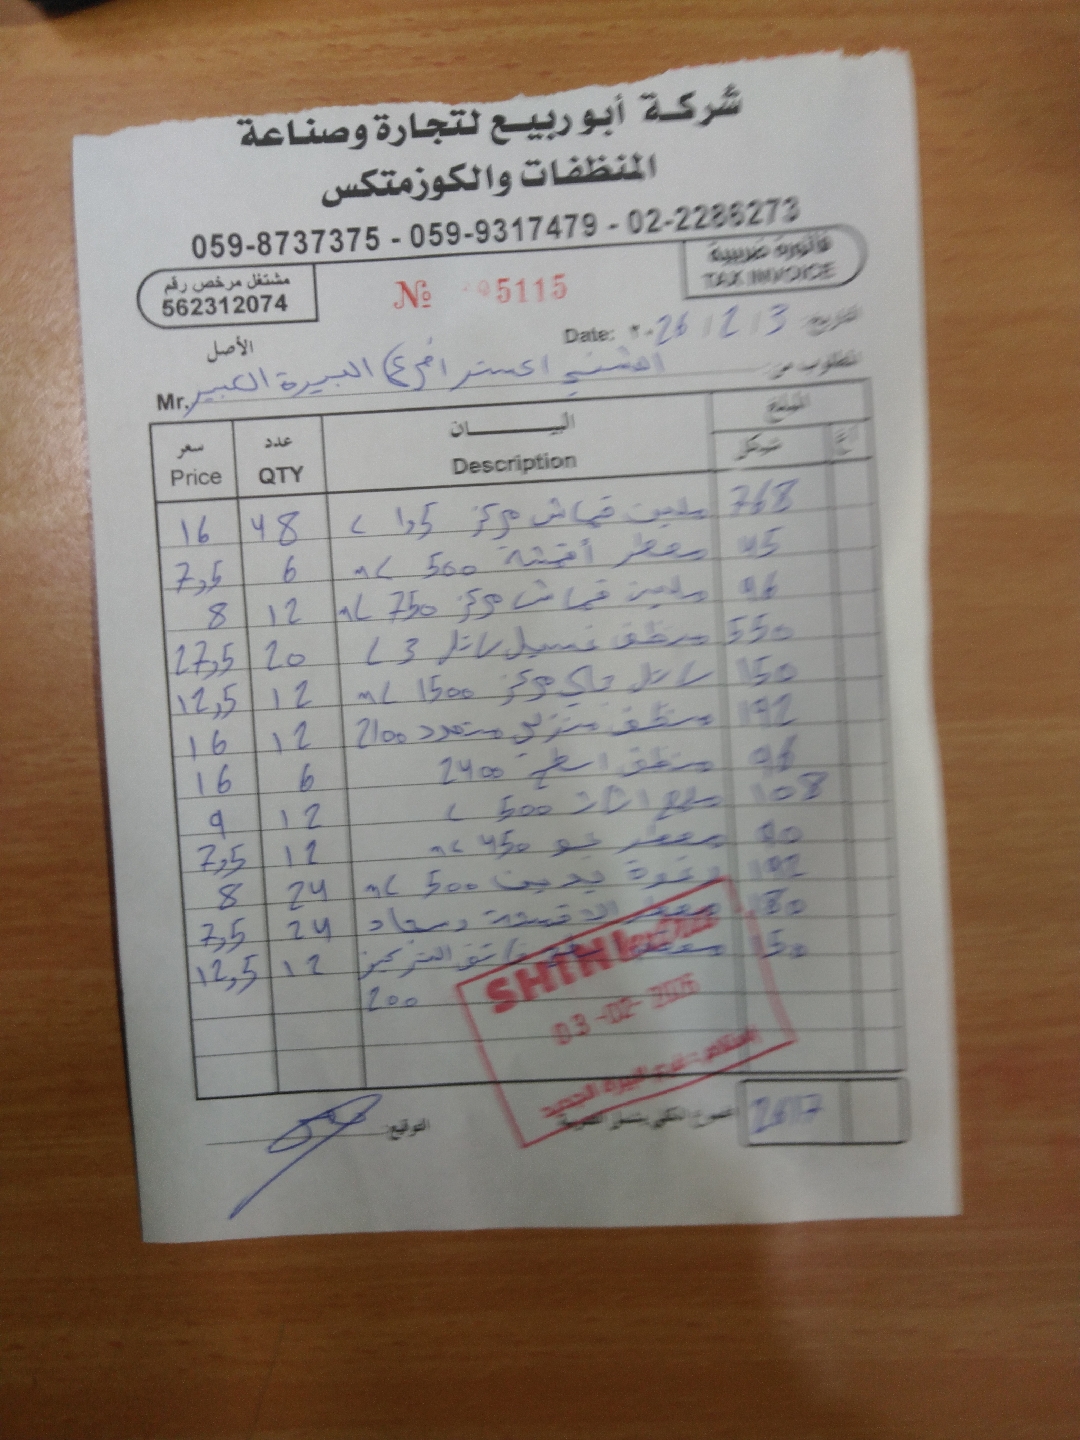 شركة أبو ربيع لتجارة وصناعة
المنظفات والكوزمتكس
059-8737375 - 059-9317479 - 02-2286273
مشتغل مرخص رقم
562312074
№ 5115
فاتورة ضريبية
TAX INVOICE
الأصل
Date: ٢٠26 / 2 / 3 التاريخ
المطلوب من
Mr. الشني اكسترا فرع البيرة الكبير
سعر Price عدد QTY البيـــــان Description المبلغ شيكل
16 48 ملين قماش مركز 1,5 L 768
7,5 6 معطر أقمشة 500 mL 45
8 12 ملين قماش مركز 750 mL 96
27,5 20 منظف غسيل سائل 3 L 550
12,5 12 سائل جلي مركز 1500 mL 150
16 12 منظف منزلي متعدد 2100 192
16 6 منظف اسطح 2400 96
9 12 ملمع اثاث 500 L 108
7,5 12 معطر جو 450 mL 90
8 24 رغوة يدين 500 mL 192
7,5 24 معطر الاقمشة وسجاد 180
12,5 12 معطر فائق التركيز 150
200
SHINI extra
03-02-2026
المجموع الكلي يشمل الضريبة 2617
التوقيع: